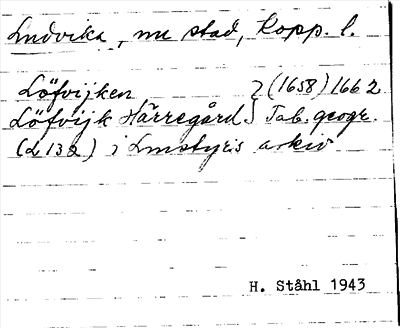 Ludvika, nu stad, Kopp. l.
Löfvijken } (1658) 1662
Löfvijk Härregård } Tab. geogr.
(L 132) i Lmstyrs arkiv
H. Ståhl 1943